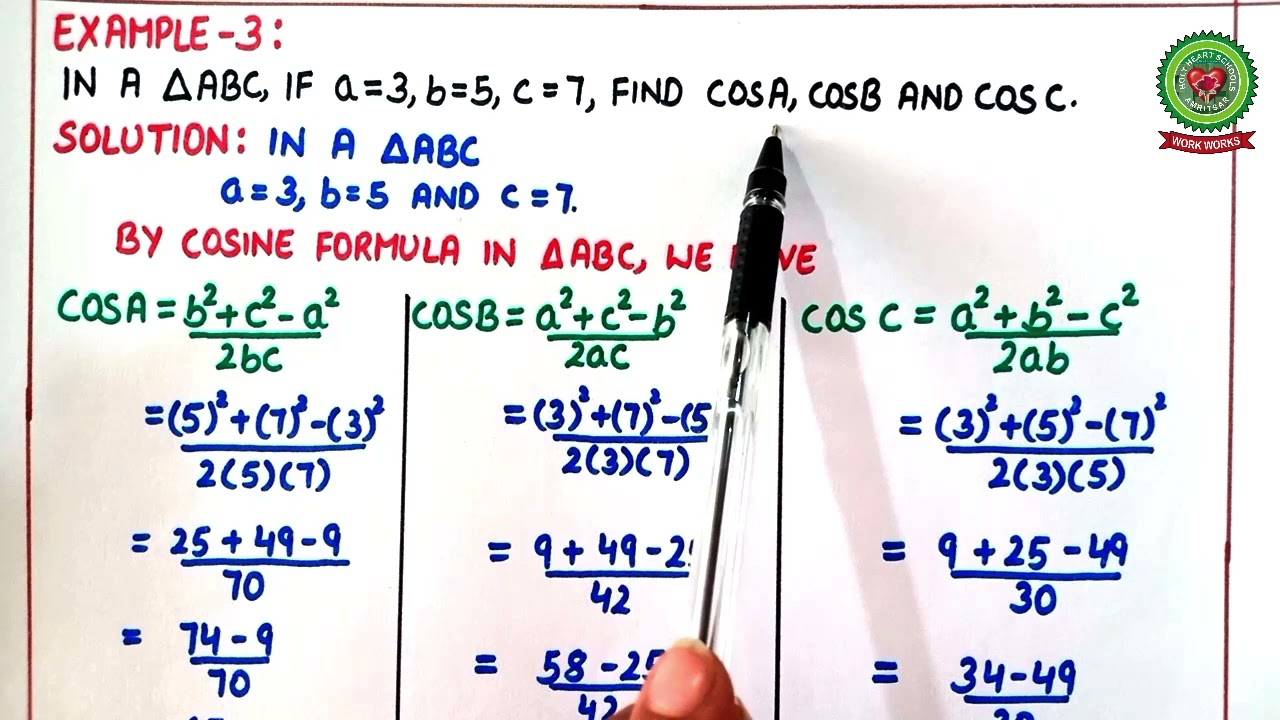 EXAMPLE-3:
IN A △ABC, IF a=3, b=5, c=7, FIND COSA, COSB AND COS C.
SOLUTION: IN A △ABC
a=3, b=5 AND c=7.
BY COSINE FORMULA IN △ABC, WE
COSA = b²+c²-a² / 2bc
= (5)²+(7)²-(3)² / 2(5)(7)
= 25+49-9 / 70
= 74-9 / 70
COSB = a²+c²-b² / 2ac
= (3)²+(7)²-(5 / 2(3)(7)
= 9+49-2 / 42
= 58-25 / 42
COS C = a²+b²-c² / 2ab
= (3)²+(5)²-(7)² / 2(3)(5)
= 9+25-49 / 30
= 34-49 / 30
HOLY HEART SCHOOLS
AMRITSAR
WORK WORKS